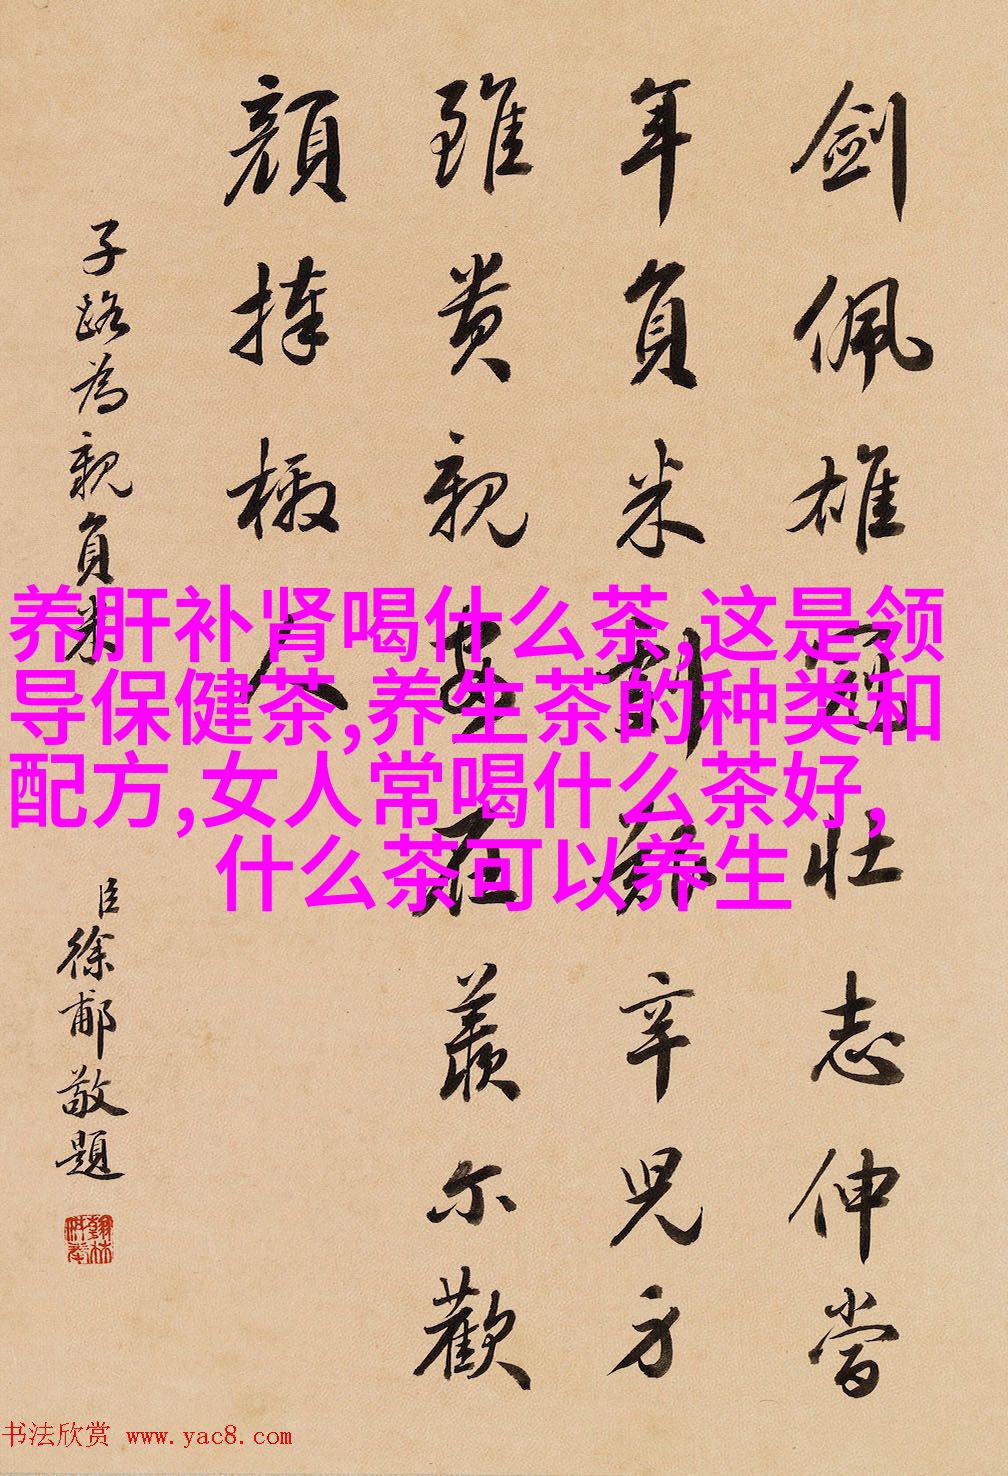 劍佩雄冠壯志伸當
年負米劇艱辛兒方
雖貴親安在羨尔歡
顏捧檄人
子路為親負米
臣徐郙敬題
养肝补肾喝什么茶,这是领
导保健茶,养生茶的种类和
配方,女人常喝什么茶好,
什么茶可以养生
书法欣赏 www.yac8.com